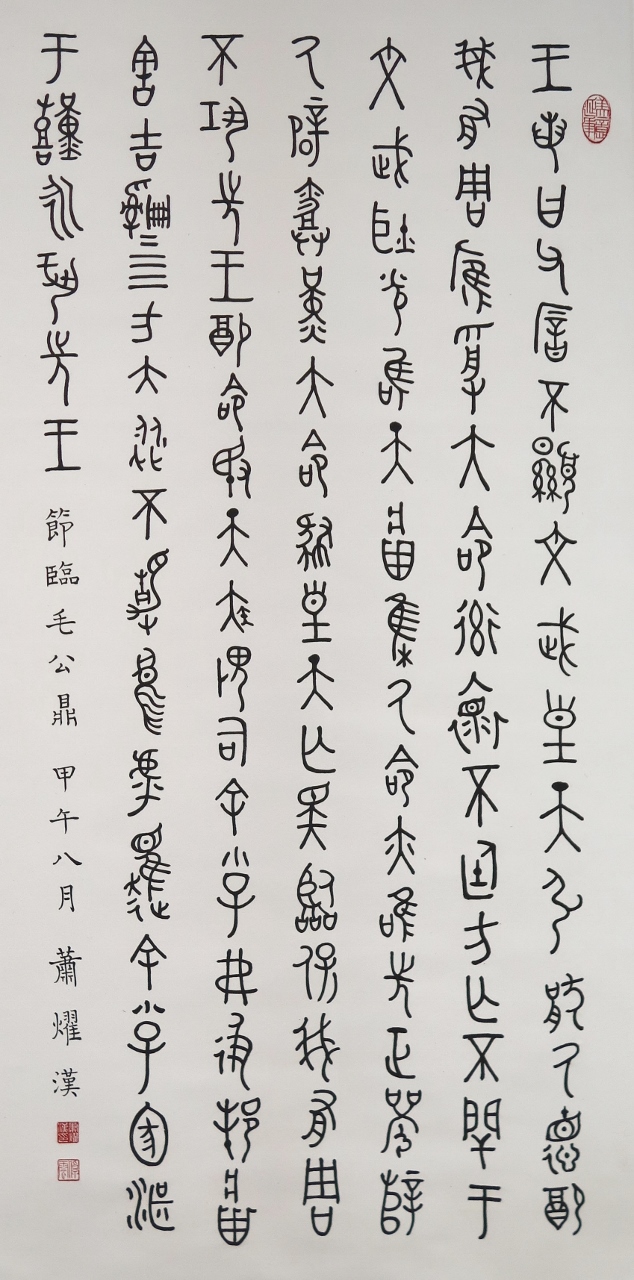 王若曰父厝不顯文武皇天弘猒厥德配
我有周雁受大命率懷不廷方亡不閈于
文武耿光唯天將集厥命亦唯先正襄辥
厥辟勞堇大命肆皇天亡斁臨保我有周
不巩先王配命敃天疾畏司余小子弗彶邦將
害吉四方大從不靜烏虖趯余小子圂湛
于艱永巩先王 節臨毛公鼎 甲午八月 蕭耀漢